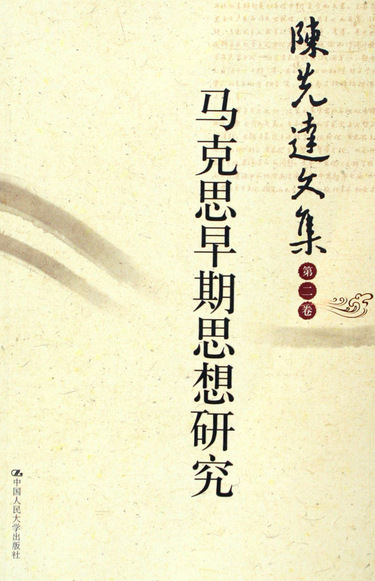 陳先達文集
第二卷
马克思早期思想研究
中国人民大学出版社